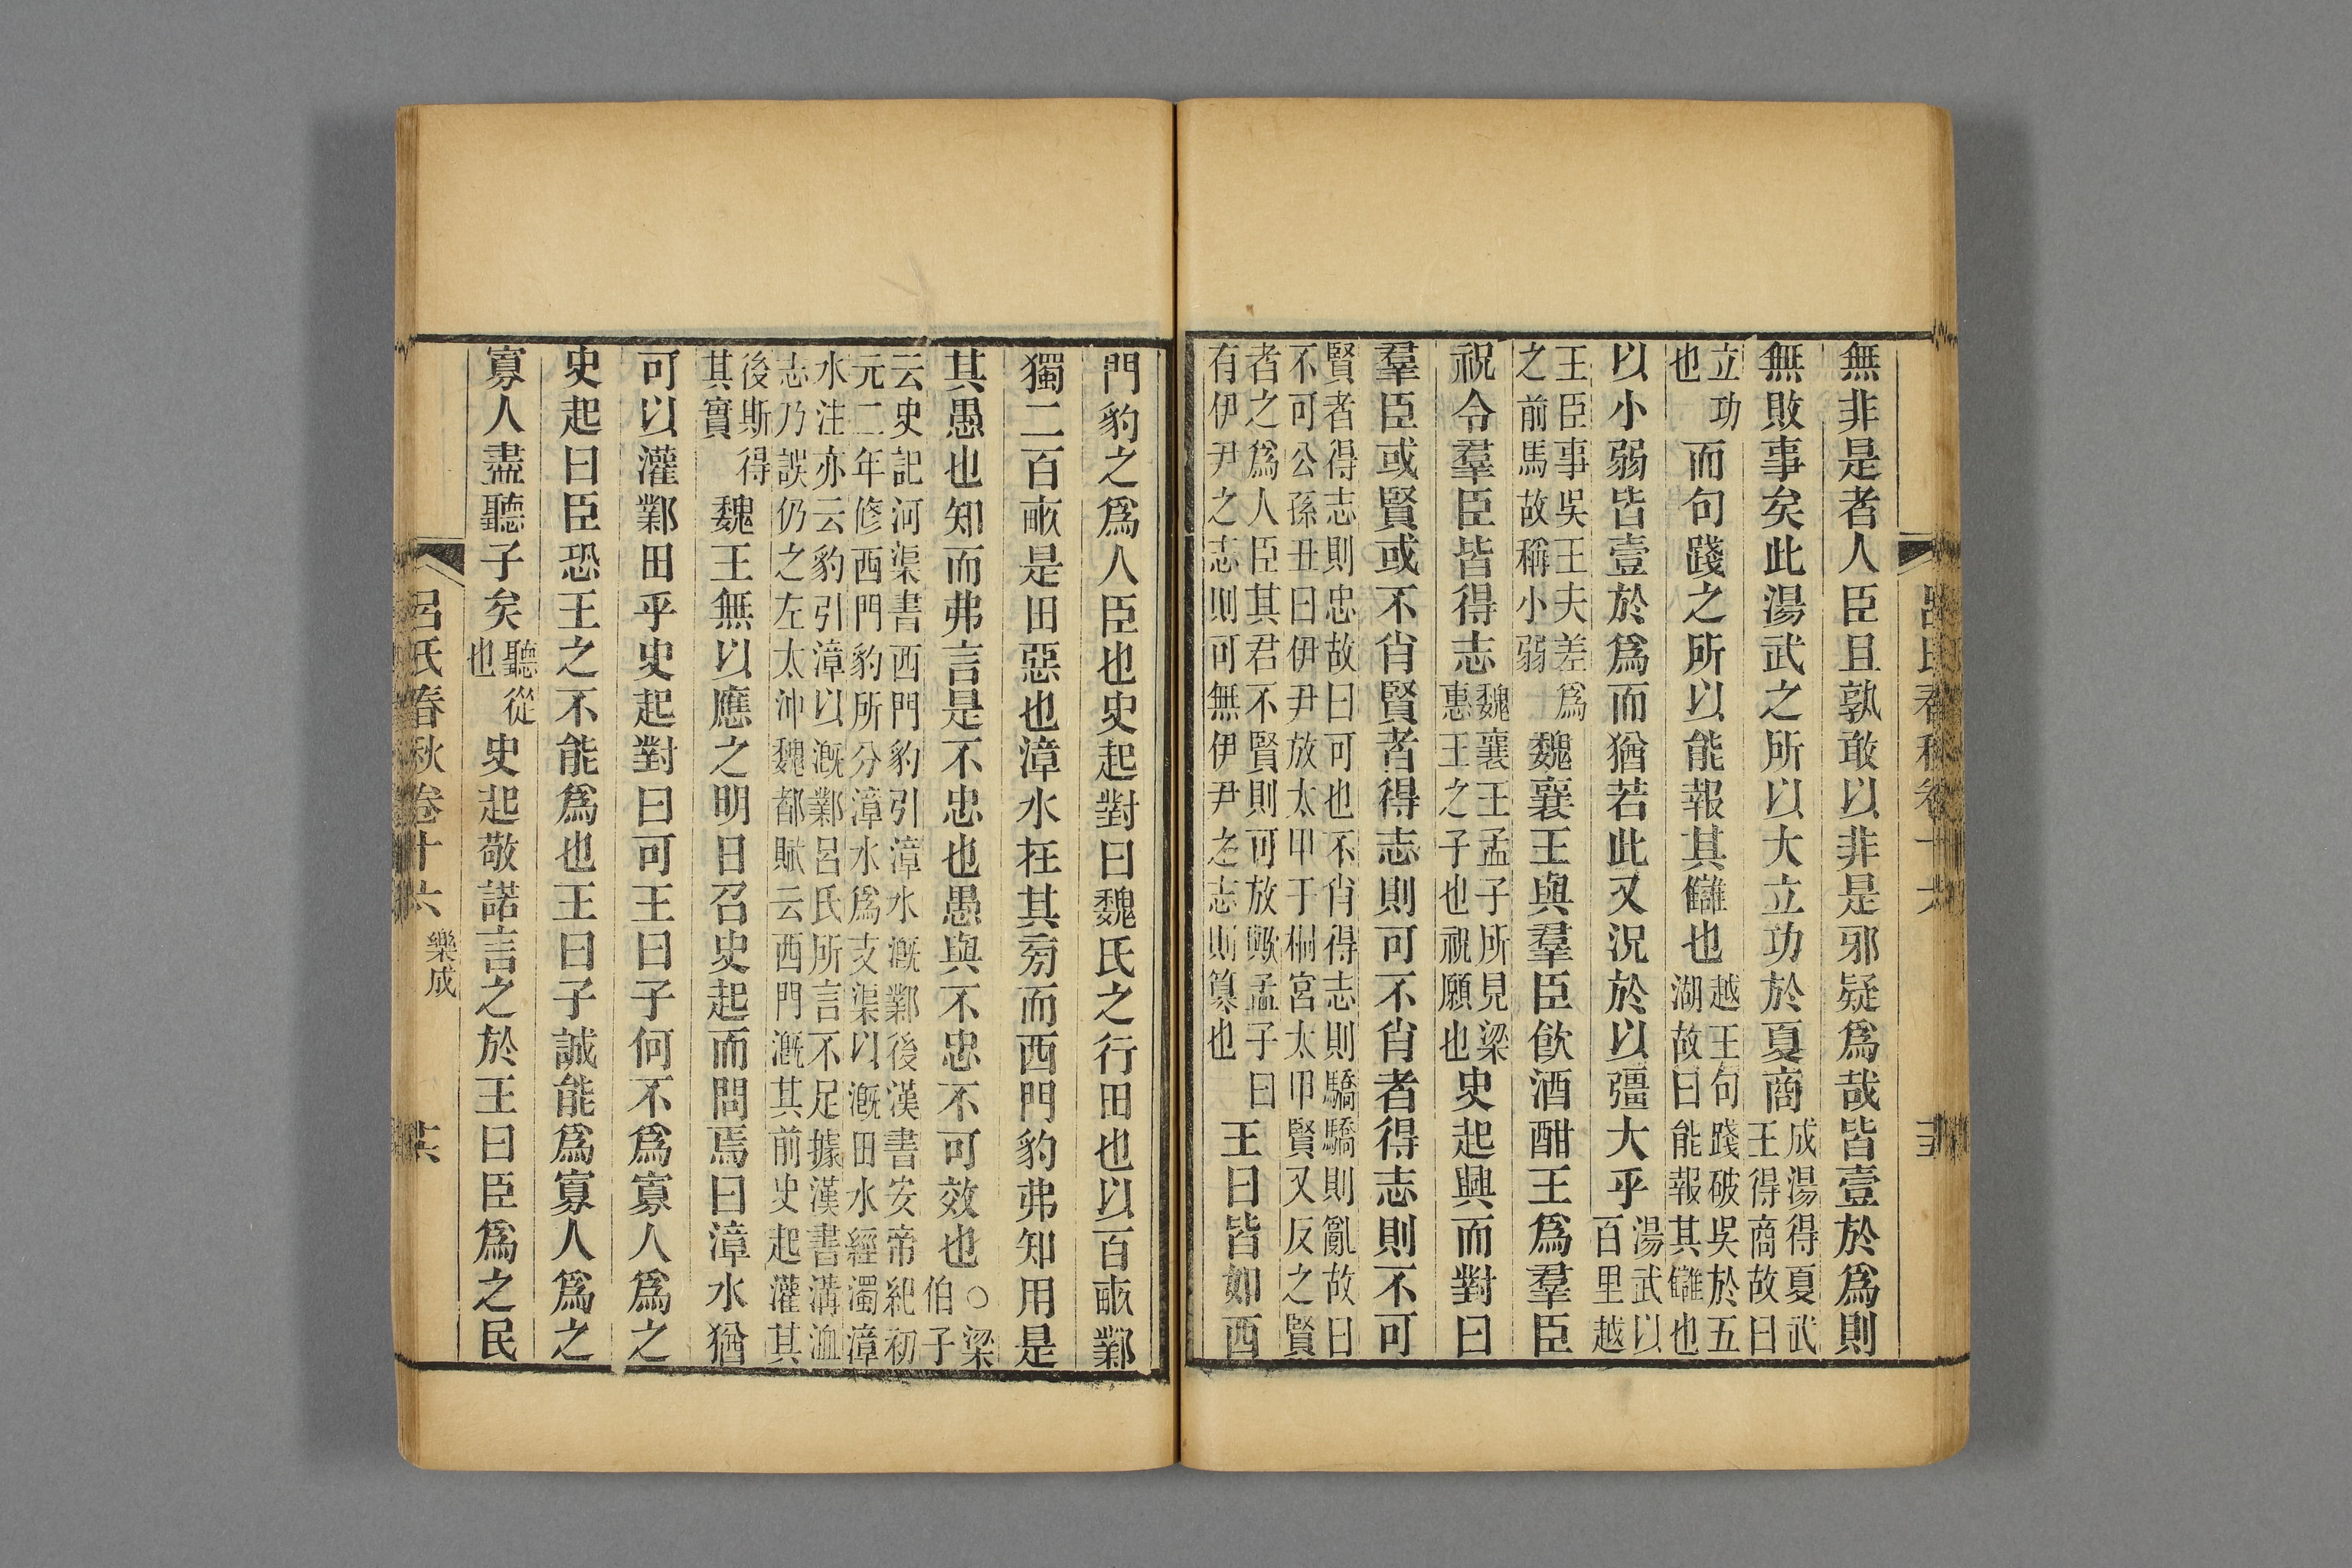 呂氏春秋卷十六
無非是者人臣且孰敢以非是邪疑爲哉皆壹於爲則
無敗事矣此湯武之所以大立功於夏商成湯得夏武王得商故曰
立功也而句踐之所以能報其讎也越王句踐破吳於五湖故曰能報其讎也
以小弱皆壹於爲而猶若此又況於以彊大乎湯武以百里越
王臣事吳王夫差爲之前馬故稱小弱魏襄王與羣臣飲酒酣王爲羣臣
祝令羣臣皆得志魏襄王孟子所見梁惠王之子也祝願也史起興而對曰
羣臣或賢或不肖賢者得志則可不肖者得志則不可
賢者得志則忠故曰可也不肖得志則驕驕則亂故曰
不可公孫丑曰伊尹放太甲于桐宮太甲賢又反之賢
者之爲人臣其君不賢則可放歟孟子曰
有伊尹之志則可無伊尹之志則篡也王曰皆如西
門豹之爲人臣也史起對曰魏氏之行田也以百畝鄴
獨二百畝是田惡也漳水在其旁而西門豹弗知用是
其愚也知而弗言是不忠也愚與不忠不可效也○梁伯子
云史記河渠書西門豹引漳水漑鄴後漢書安帝紀初
元二年修西門豹所分漳水爲支渠以漑田水經濁漳
水注亦云豹引漳以漑鄴呂氏所言不足據漢書溝洫
志乃誤仍之左太沖魏都賦云西門漑其前史起灌其
後斯得其實魏王無以應之明日召史起而問焉曰漳水猶
可以灌鄴田乎史起對曰可王曰子何不爲寡人爲之
史起曰臣恐王之不能爲也王曰子誠能爲寡人爲之
寡人盡聽子矣聽從也史起敬諾言之於王曰臣爲之民
呂氏春秋卷十六 樂成